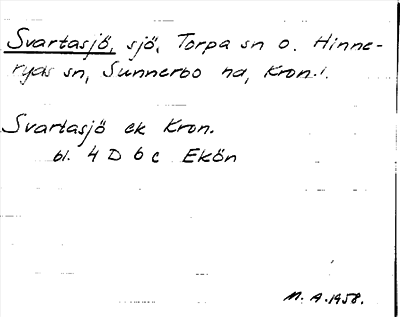 Svartasjö, sjö, Torpa sn o. Hinne-
ryds sn, Sunnerbo hd, Kron.l.
Svartasjö ek Kron.
bl. 4 D 6 c Ekön
M. A. 1958.